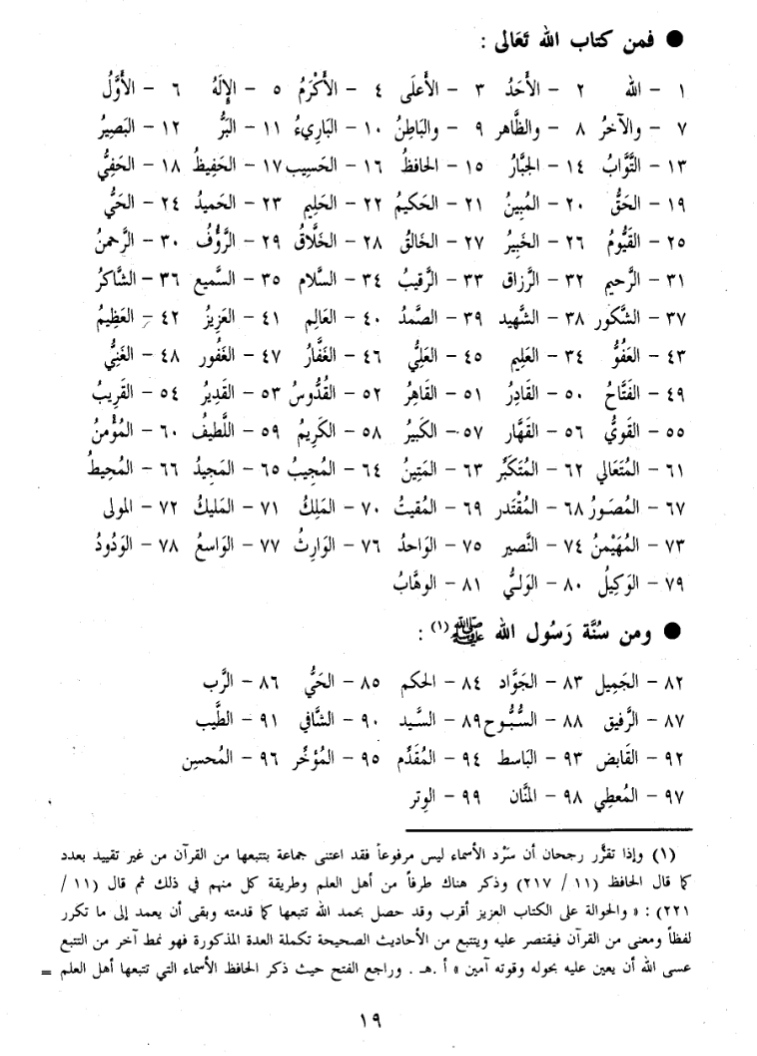 ● فمن كتاب الله تَعَالى :
١ - الله ٢ - الأَحَدُ ٣ - الأَعلَى ٤ - الأَكْرَمُ ٥ - الإِلَهُ ٦ - الأَوَّلُ
٧ - والآخرُ ٨ - والظَّاهر ٩ - والبَاطِنُ ١٠ - البَارِيءُ ١١ - البَرُّ ١٢ - البَصِيرُ
١٣ - التَّوَّابُ ١٤ - الجبَّارُ ١٥ - الحافظُ ١٦ - الحَسِيب ١٧ - الحَفِيظُ ١٨ - الحَفِيُّ
١٩ - الحَقُّ ٢٠ - المُبِينُ ٢١ - الحَكيمُ ٢٢ - الحَلِيم ٢٣ - الحَميدُ ٢٤ - الحَيُّ
٢٥ - القَيُّومُ ٢٦ - الخَبِيرُ ٢٧ - الخَالقُ ٢٨ - الخَلَّاقُ ٢٩ - الرَّؤُفُ ٣٠ - الرَّحمنُ
٣١ - الرَّحيم ٣٢ - الرَّزاق ٣٣ - الرَّقيبُ ٣٤ - السَّلام ٣٥ - السَّميع ٣٦ - الشَّاكرُ
٣٧ - الشَّكور ٣٨ - الشَّهيد ٣٩ - الصَّمدُ ٤٠ - العَالِم ٤١ - العَزِيزُ ٤٢ - العَظِيمُ
٤٣ - العَفوُّ ٣٤ - العَلِيم ٤٥ - العَلِيُّ ٤٦ - الغَفَّارُ ٤٧ - الغَفُور ٤٨ - الغَنِيُّ
٤٩ - الفَتَّاحُ ٥٠ - القَادِرُ ٥١ - القَاهِرُ ٥٢ - القُدُّوسُ ٥٣ - القَدِيرُ ٥٤ - القَرِيبُ
٥٥ - القَويُّ ٥٦ - القَهَّار ٥٧ - الكَبيرُ ٥٨ - الكَرِيمُ ٥٩ - اللَّطيفُ ٦٠ - المُؤْمنُ
٦١ - المُتَعَالي ٦٢ - المُتَكَبِّر ٦٣ - المَتِينُ ٦٤ - المُجِيبُ ٦٥ - المَجِيدُ ٦٦ - المُحِيطُ
٦٧ - المُصَورُ ٦٨ - المُقْتَدر ٦٩ - المُقيتُ ٧٠ - المَلِكُ ٧١ - المَليكُ ٧٢ - المولى
٧٣ - المُهَيْمنُ ٧٤ - النَّصير ٧٥ - الوَاحدُ ٧٦ - الوَارِثُ ٧٧ - الوَاسعُ ٧٨ - الوَدُودُ
٧٩ - الوَكِيلُ ٨٠ - الوَليُّ ٨١ - الوهَّابُ
● ومن سُنَّة رَسُول الله ﷺ (١) :
٨٢ - الجَمِيل ٨٣ - الجَوَّاد ٨٤ - الحكم ٨٥ - الحَيُّ ٨٦ - الرَّب
٨٧ - الرَّفيق ٨٨ - السُّبُّوح ٨٩ - السَّيد ٩٠ - الشَّافي ٩١ - الطَّيب
٩٢ - القَابض ٩٣ - البَاسط ٩٤ - المُقَدِّم ٩٥ - المُؤَخِّر ٩٦ - المُحسِن
٩٧ - المُعطِي ٩٨ - المنَّان ٩٩ - الوِتر
(١) وإذا تقرَّر رجحان أن سَرْد الأسماء ليس مرفوعاً فقد اعتنى جماعة بتتبعها من القرآن من غير تقييد بعدد
كما قال الحافظ (١١ / ٢١٧) وذكر هناك طرفاً من أهل العلم وطريقة كل منهم في ذلك ثم قال (١١ /
٢٢١) : « والحوالة على الكتاب العزيز أقرب وقد حصل بحمد الله تتبعها كما قدمته وبقى أن يعمد إلى ما تكرر
لفظاً ومعنى من القرآن فيقتصر عليه ويتتبع من الأحاديث الصحيحة تكملة العدة المذكورة فهو نمط آخر من التتبع
عسى الله أن يعين عليه بحوله وقوته آمين » أ .هـ . وراجع الفتح حيث ذكر الحافظ الأسماء التي تتبعها أهل العلم =
١٩